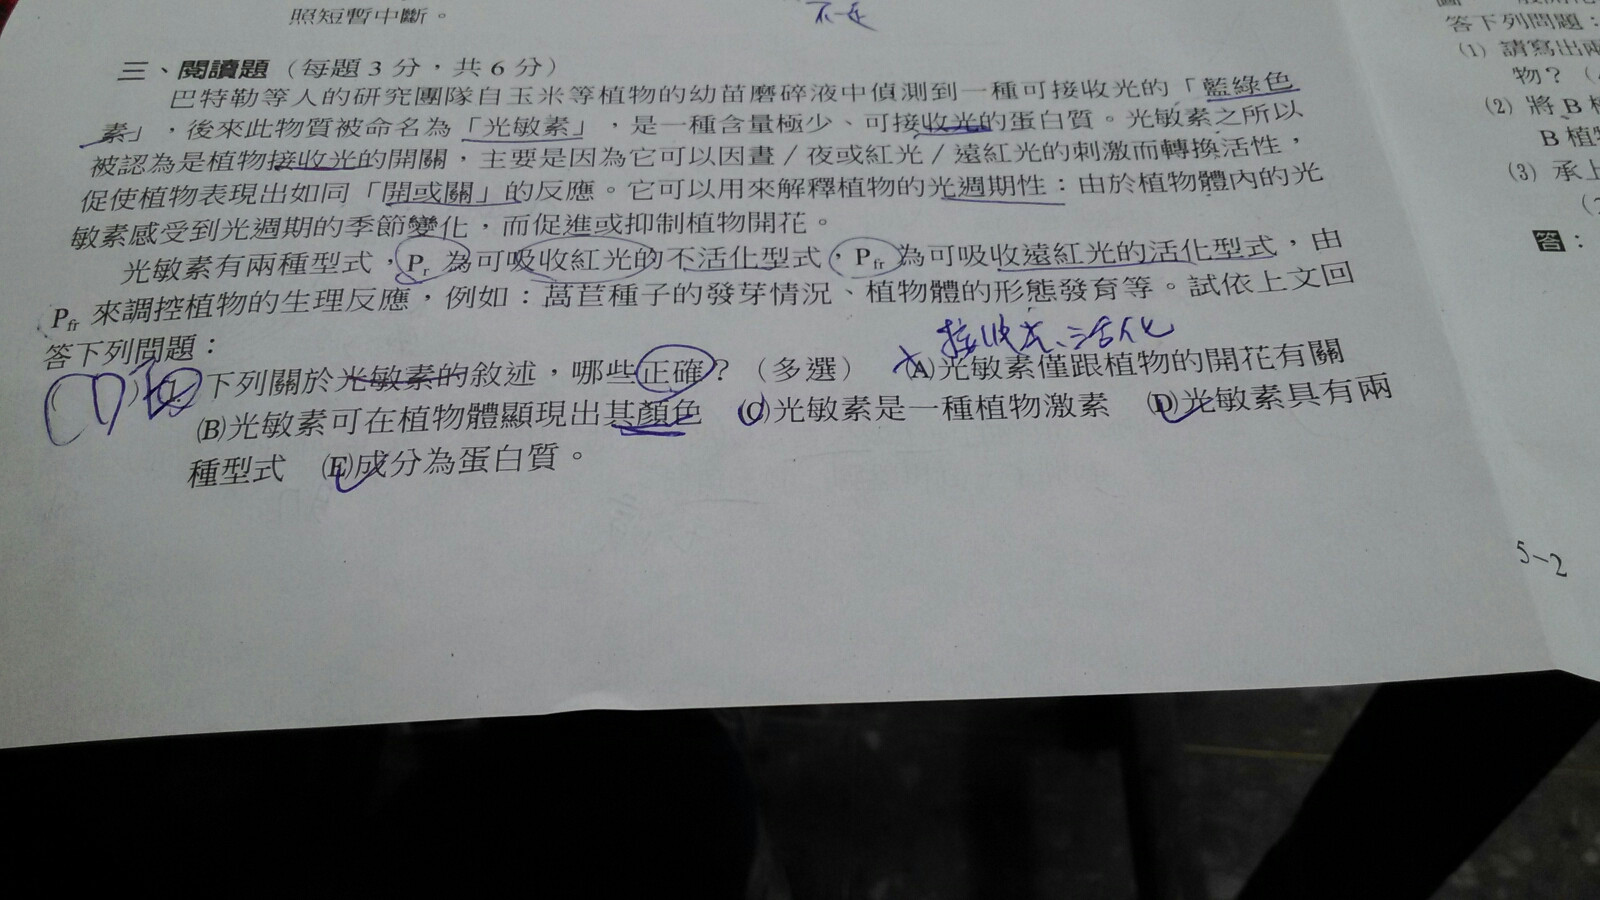 照短暫中斷。
三、閱讀題（每題3分，共6分）
巴特勒等人的研究團隊自玉米等植物的幼苗磨碎液中偵測到一種可接收光的「藍綠色
素」，後來此物質被命名為「光敏素」，是一種含量極少、可接收光的蛋白質。光敏素之所以
被認為是植物接收光的開關，主要是因為它可以因晝／夜或紅光／遠紅光的刺激而轉換活性，
促使植物表現出如同「開或關」的反應。它可以用來解釋植物的光週期性：由於植物體內的光
敏素感受到光週期的季節變化，而促進或抑制植物開花。
光敏素有兩種型式，Pr 為可吸收紅光的不活化型式，Pfr 為可吸收遠紅光的活化型式，由
Pfr 來調控植物的生理反應，例如：萵苣種子的發芽情況、植物體的形態發育等。試依上文回
答下列問題：
接收光、活化
1. 下列關於光敏素的敘述，哪些正確？（多選） (A)光敏素僅跟植物的開花有關
(B)光敏素可在植物體顯現出其顏色 (C)光敏素是一種植物激素 (D)光敏素具有兩
種型式 (E)成分為蛋白質。
答下列問題：
(1) 請寫出兩
物？
(2) 將B植
B植物
(3) 承上
答：
5-2